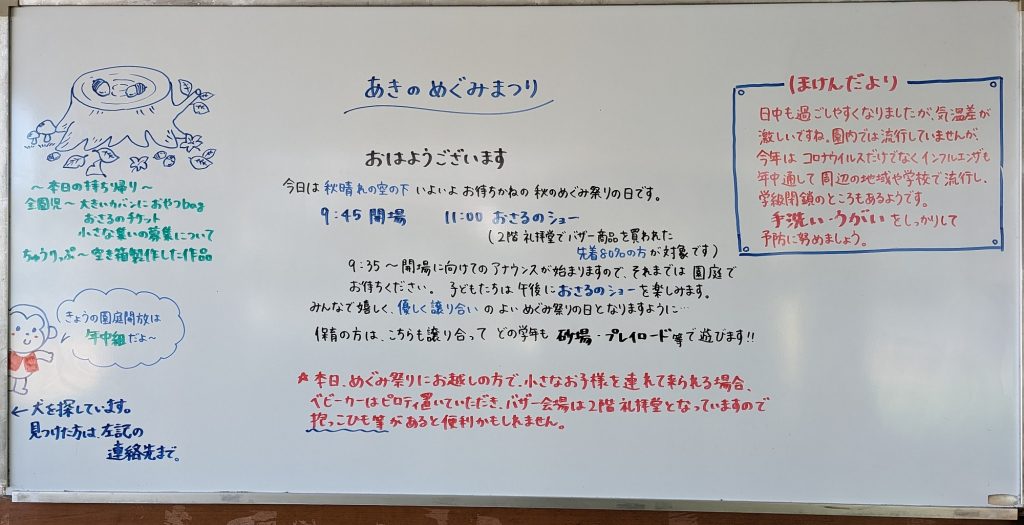 あきのめぐみまつり
おはようございます
今日は 秋晴れの空の下 いよいよ お待ちかねの 秋のめぐみ祭りの日です。
9:45 開場　11:00 おさるのショー
(2階 礼拝堂でバザー商品を買われた
先着80%の方が対象です)
9:35～開場に向けてのアナウンスが始まりますので、それまでは 園庭で
お待ちください。 子どもたちは 午後に おさるのショーを楽しみます。
みんなで嬉しく、優しく譲り合い のよいめぐみ祭りの日となりますように…
保育の方は、こちらも譲り合って どの学年も 砂場・プレイロード等で遊びます!!
☆本日、めぐみ祭りにお越しの方で、小さなお子様を連れて来られる場合、
ベビーカーはピロティ置いていただき、バザー会場は2階 礼拝堂となっていますので
抱っこひも等があると便利かもしれません。
～本日の持ち帰り～
全園児～大きいカバンにおやつbag
おさるのチケット
小さな集いの募集について
ちゅうりっぷ～空き箱製作した作品
きょうの園庭開放は
年中組だよ～
←犬を探しています。
見つけた方は、左記の
連絡先まで。
ほけんだより
日中も過ごしやすくなりましたが、気温差が
激しいですね。園内では流行していませんが、
今年は コロナウイルスだけでなく インフルエンザも
年中通して 周辺の地域や学校で流行し、
学級閉鎖のところもあるようです。
手洗い・うがいをしっかりして
予防に努めましょう。